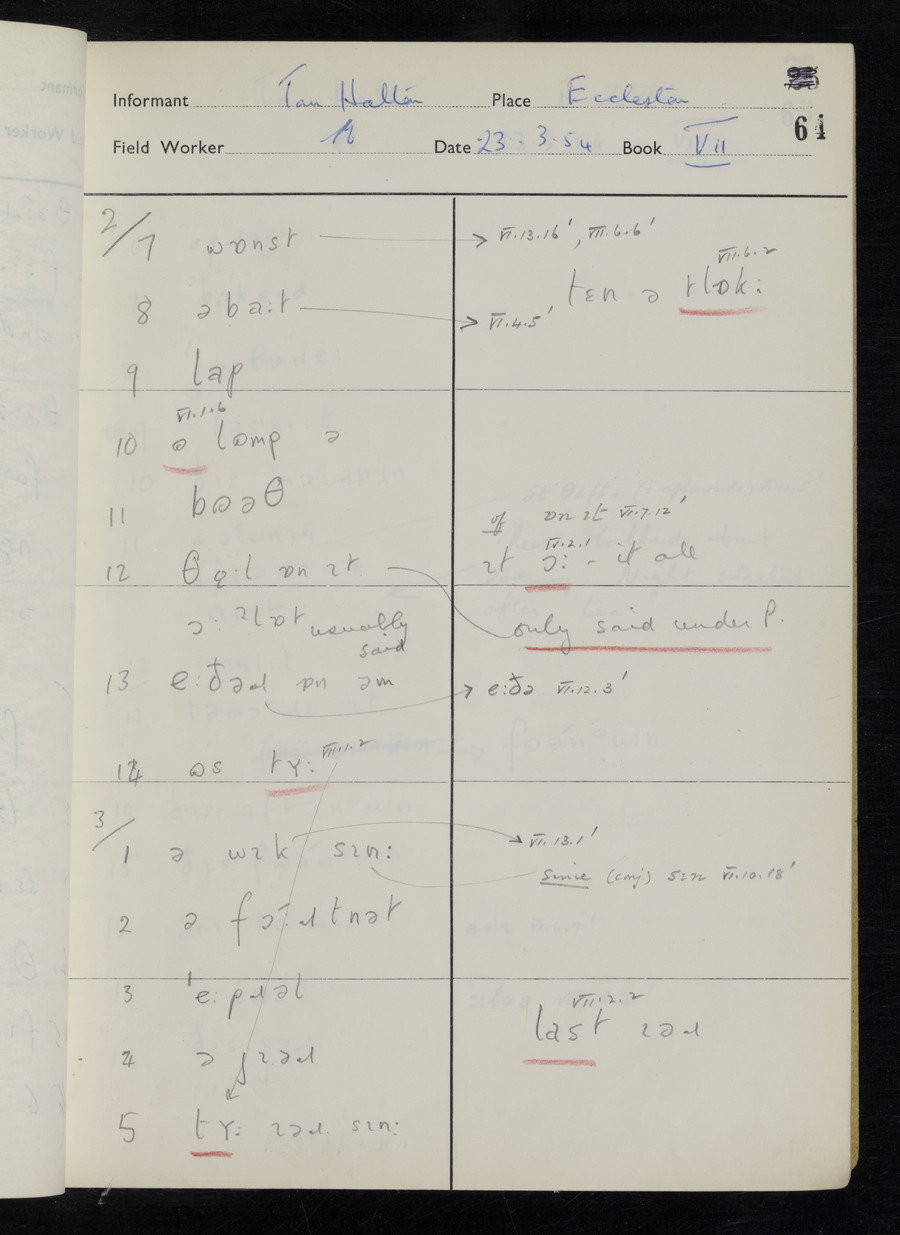 Informant Tom Halton Place Eccleston
64
Field Worker Date 23.3.54 Book VII
2/7 wɒnst VI.13.16', VII.6.6'
VII.6.2
tɛn ə tlɒk:
8 əba:t VI.4.5'
9 lap
VI.1.6
10 lɒmp ə
11 bʊəθ
of ɒn ɪt VI.7.12'
IV.2.1
12 ɒn ɪt ɪt ɔ: - it all
usually only said under P.
said
13 e:ðəɹ ɒn əm e:ðə VI.12.3'
VII.1.2
14 ʊs tʏ:
3/1 ə wɪk sɪn: VI.13.1'
since (conj) sɪn VI.10.18'
2 ə fɔ:ɹtnət
3 'e:pɹəl
VII.2.2
last ɪəɹ
4 ə jɪəɹ
5 tʏ: ɪəɹ sɪn: